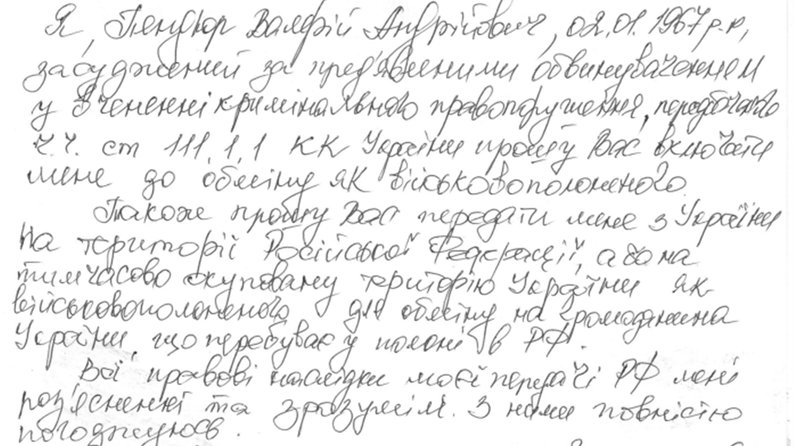 Я, Пендюр Валерій Андрійович, 02.01.1967 р.н,
засуджений за пред'явленими обвинуваченнем
у вчененні кримінального правопорушення, передбачого
ч.ч. ст 111,1,1 КК України прошу Вас включати
мене до обміну як військовополоненого.
Також прошу Вас передати мене з України
на територіі Російської Федерації, або на
тимчасово окуповану територію України як
військовополоненого для обміну на громадянина
України, що перебуває у полоні в РФ.
Всі правові наслідки моєї передачі РФ мені
роз'ясненні та зрозумілі. З ними повністю
погоджуюсь.